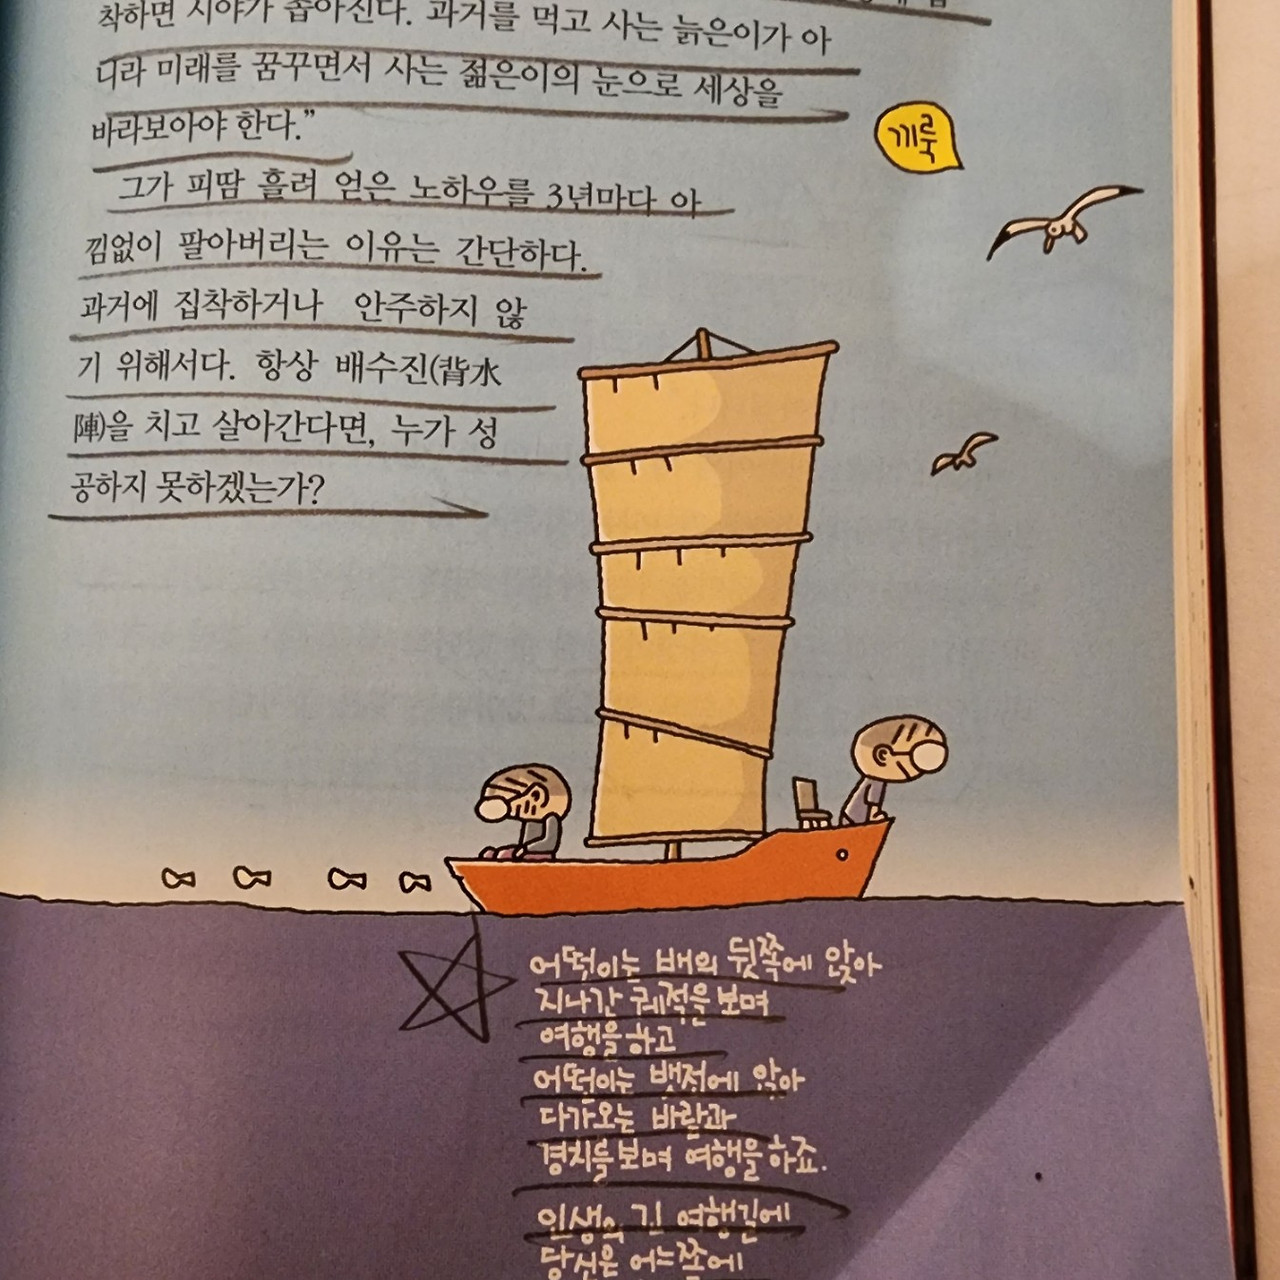 착하면 시야가 좁아진다. 과거를 먹고 사는 늙은이가 아
니라 미래를 꿈꾸면서 사는 젊은이의 눈으로 세상을
바라보아야 한다.”
그가 피땀 흘려 얻은 노하우를 3년마다 아
낌없이 팔아버리는 이유는 간단하다.
과거에 집착하거나 안주하지 않
기 위해서다. 항상 배수진(背水
陣)을 치고 살아간다면, 누가 성
공하지 못하겠는가?
끼룩
어떤이는 배의 뒷쪽에 앉아
지나간 궤적을 보며
여행을 하고
어떤이는 뱃전에 앉아
다가오는 바람과
경치를 보며 여행을 하죠.
인생의 긴 여행길에
당신은 어느쪽에